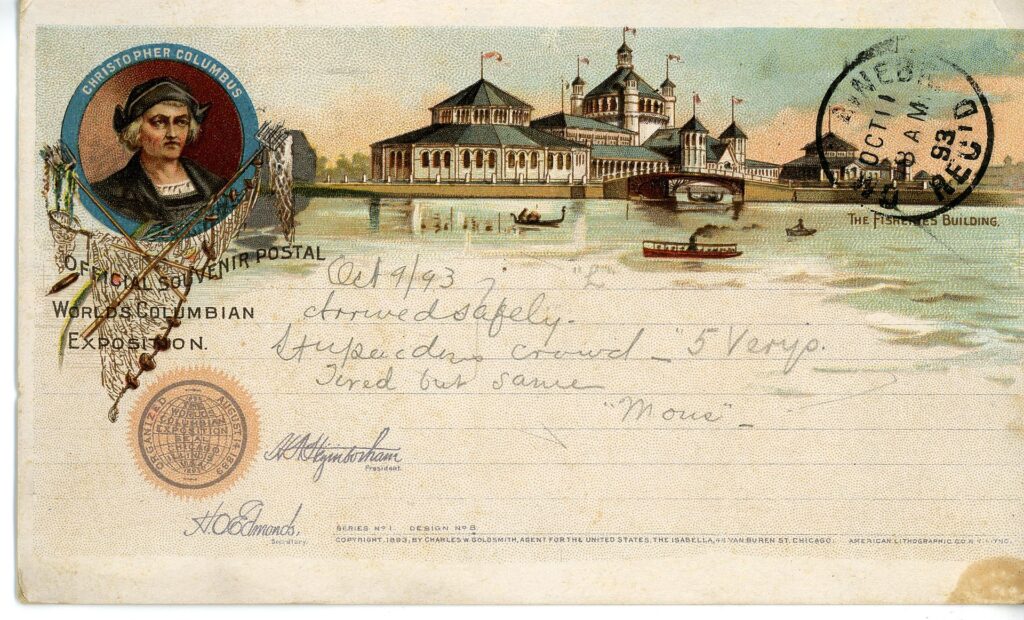 CHRISTOPHER COLUMBUS
OCT 11
8 AM
93
REC'D
THE FISHERIES BUILDING.
OFFICIAL SOUVENIR POSTAL
WORLDS COLUMBIAN
EXPOSITION.
Oct 9/93 "L"
Arrived safely.
crowd - "5 Verys.
Tired but same
"Mous"
ORGANIZED AUGUST
WORLD'S
COLUMBIAN
EXPOSITION
SEAL
President.
H.O. Edmonds,
Secretary.
SERIES No 1. DESIGN No 8.
COPYRIGHT, 1893, BY CHARLES W. GOLDSMITH, AGENT FOR THE UNITED STATES, THE ISABELLA, VAN BUREN ST. CHICAGO. AMERICAN LITHOGRAPHIC CO. N.Y.